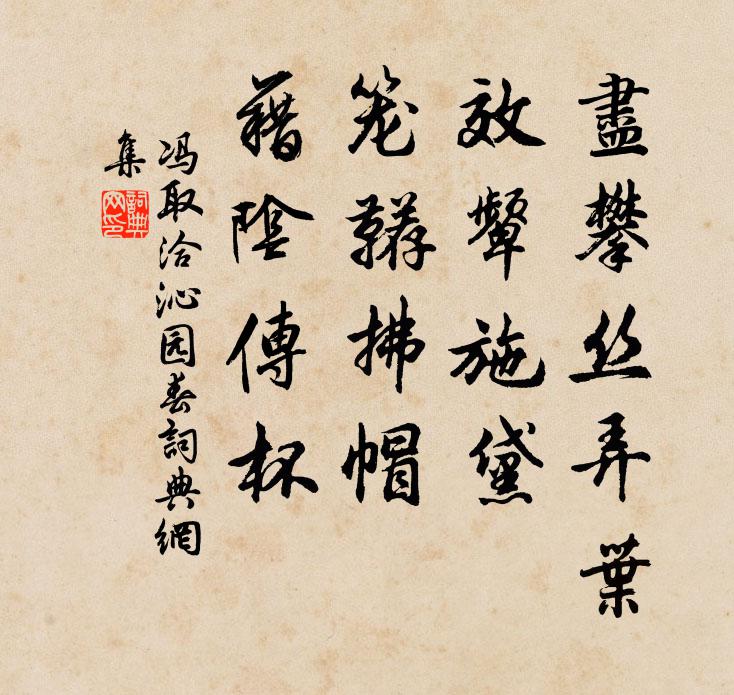 盡攀丝弄葉
效顰施黛
笼韉拂帽
藉陰傳杯
冯取洽沁园春詞典網
集
詞典
网印